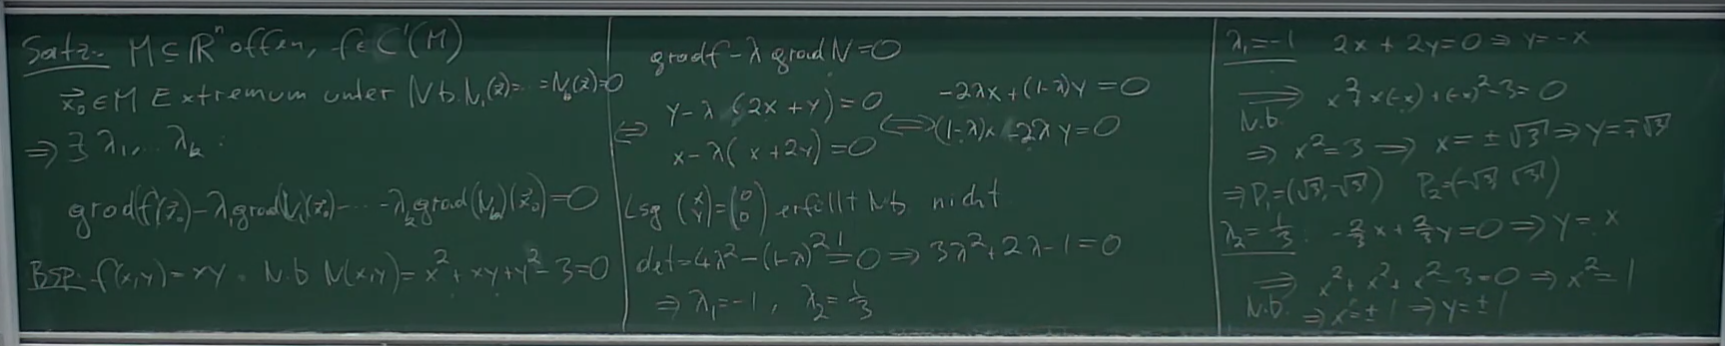 Satz: M ⊆ ℝⁿ offen, f ∈ C¹(M)
x⃗₀ ∈ M Extremum unter Nb. N₁(x⃗)=...=Nₖ(x⃗)=0
⇒ ∃ λ₁,...λₖ:
grad f(x⃗₀) - λ₁ grad(N₁)(x⃗₀) - ... - λₖ grad(Nₖ)(x⃗₀) = 0
BSP: f(x,y) = xy. N.b N(x,y) = x² + xy + y² - 3 = 0
grad f - λ grad N = 0
⇔ y - λ (2x + y) = 0
x - λ ( x + 2y) = 0
⇔ -2λx + (1-λ)y = 0
(1-λ)x - 2λ y = 0
Lsg (x y) = (0 0) erfüllt Nb nicht
det = 4λ² - (1-λ)² =! 0 ⇒ 3λ² + 2λ - 1 = 0
⇒ λ₁ = -1, λ₂ = 1/3
λ₁ = -1 2x + 2y = 0 ⇒ y = -x
⇒ N.b. x² + x(-x) + (-x)² - 3 = 0
⇒ x² = 3 ⇒ x = ± √3 ⇒ y = ∓√3
⇒ P₁ = (√3, -√3) P₂ = (-√3, √3)
λ₂ = 1/3: -2/3 x + 2/3 y = 0 ⇒ y = x
⇒ N.b. x² + x² + x² - 3 = 0 ⇒ x² = 1
⇒ x = ± 1 ⇒ y = ± 1